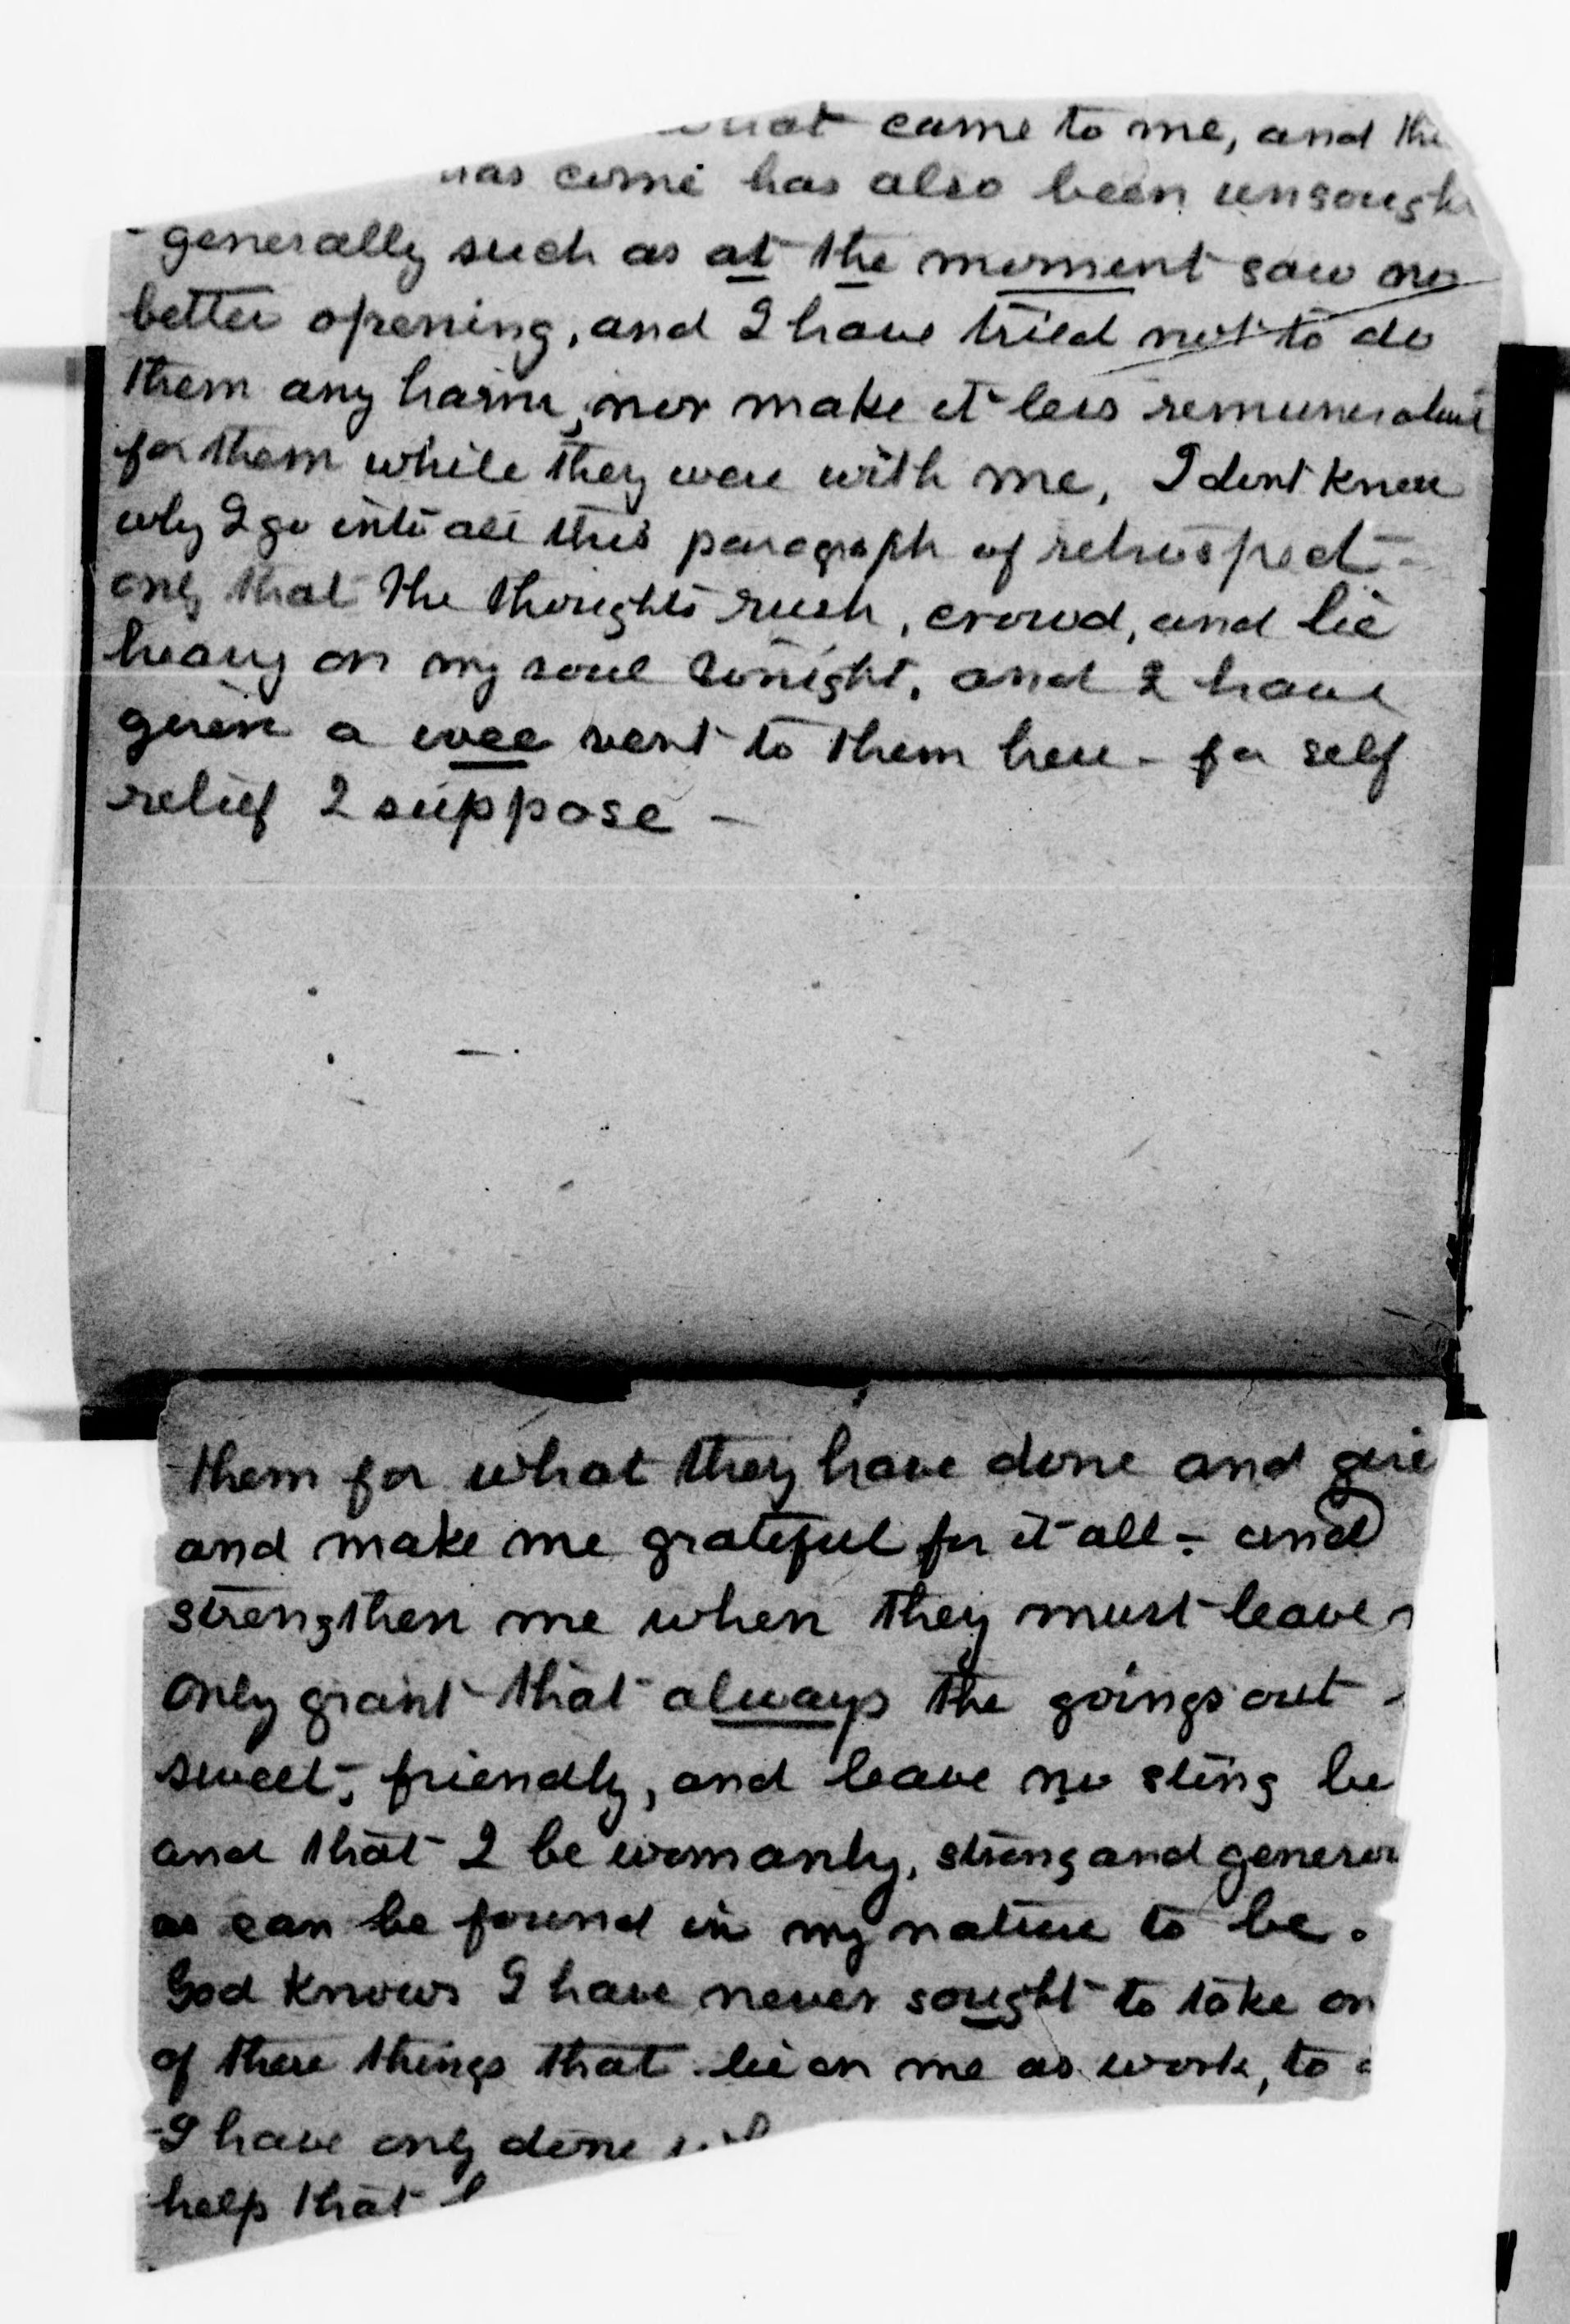 came to me, and the
has come has also been unsought
generally such as at the moment saw no
better opening, and I have tried not to do
them any harm, nor make it less remunerative
for them while they were with me, I dont know
why I go into all this paragraph of retrospect -
only that the thoughts rush, crowd, and lie
heavy on my soul tonight, and I have
given a wee vent to them here - for self
relief I suppose -
them for what they have done and give
and make me grateful for it all - and
strengthen me when they must leave
only grant that always the goings out
sweet, friendly, and leave no sting be
and that I be womanly, strong and generou
as can be found in my nature to be.
God knows I have never sought to take on
of these things that lie on me as work, to
I have only done
help that